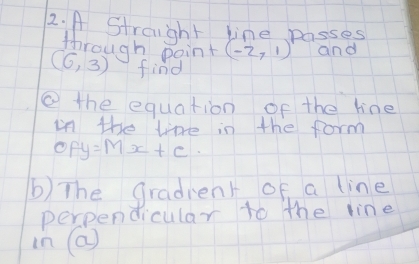 2. A Straight line passes
through point (-2, 1) and
(6, 3) find
(a) the equation of the line
in the line in the form
of y=Mx+c.
b) The gradient of a line
perpendicular to the line
in (a)